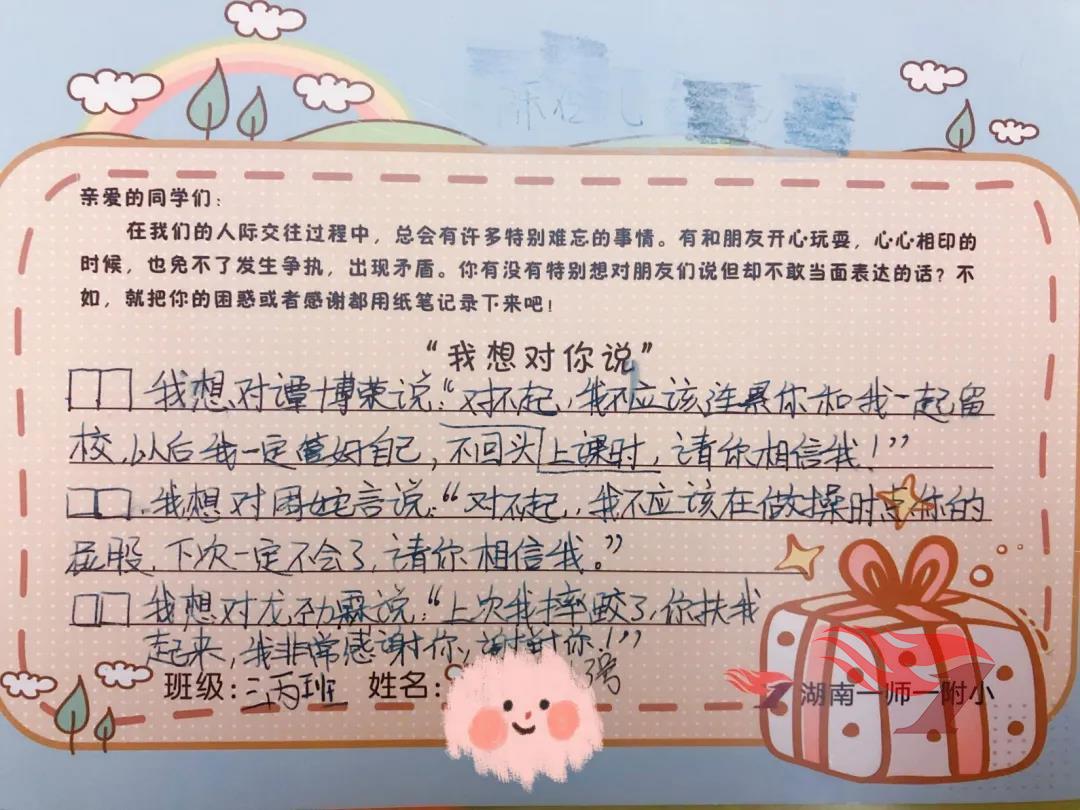 亲爱的同学们：
在我们的人际交往过程中，总会有许多特别难忘的事情。有和朋友开心玩耍，心心相印的
时候，也免不了发生争执，出现矛盾。你有没有特别想对朋友们说但却不敢当面表达的话？不
如，就把你的困惑或者感谢都用纸笔记录下来吧！
“我想对你说”
我想对谭博荣说：“对不起，我不应该连累你和我一起留
校，以后我一定管好自己，不回头上课时，请你相信我！”
我想对周婉言说：“对不起，我不应该在做操时点你的
屁股，下次一定不会了，请你相信我。”
我想对龙劲霖说：“上次我摔跤了，你扶我
起来，我非常感谢你，谢谢你！”
班级：三丙班 姓名： 号
湖南一师一附小